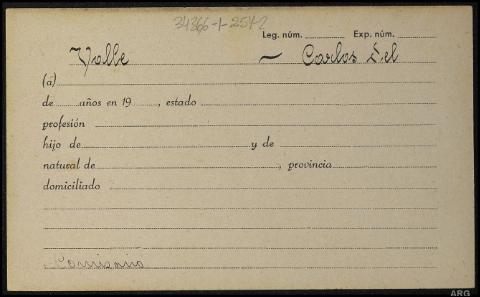 34366-1-2512
Leg. núm. Exp. núm.
Valle — Carlos del
(a)
de años en 19 , estado
profesión
hijo de y de
natural de , provincia
domiciliado
Comisario
ARG